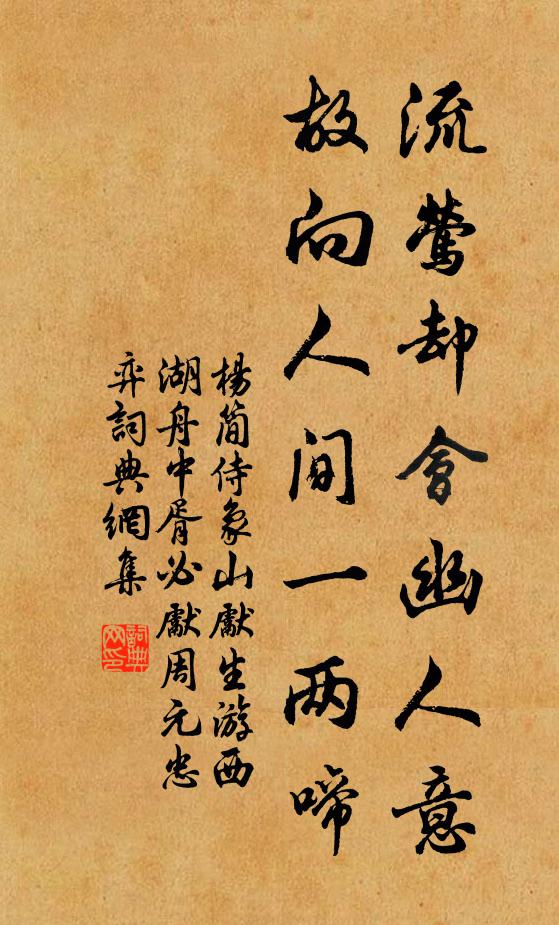 流鶯却會幽人意
故向人間一两啼
楊簡侍象山獻生游西
湖舟中胥必獻周元忠
弈詞典網集
詞典网印